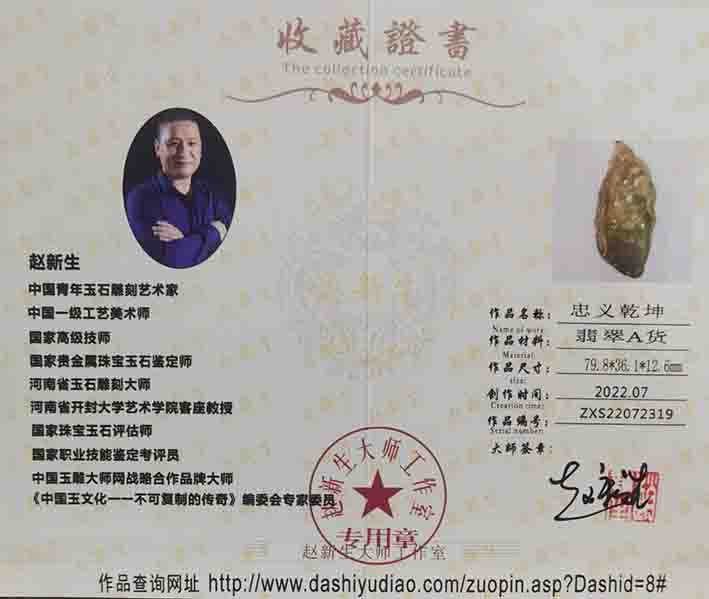 收藏證書
The collection certificate
赵新生
中国青年玉石雕刻艺术家
中国一级工艺美术师
国家高级技师
国家贵金属珠宝玉石鉴定师
河南省玉石雕刻大师
河南省开封大学艺术学院客座教授
国家珠宝玉石评估师
国家职业技能鉴定考评员
中国玉雕大师网战略合作品牌大师
《中国玉文化一一不可复制的传奇》编委会专家委员
作品名称： 忠义乾坤
Name of work:
作品材料： 翡翠A货
Material:
作品尺寸： 79.8*36.1*12.6mm
size:
创作时间： 2022.07
Creation time:
作品编号： ZXS22072319
Serial number:
大师签章：
赵新生大师工作室
专用章
赵新生大师工作室
作品查询网址 http://www.dashiyudiao.com/zuopin.asp?Dashid=8#